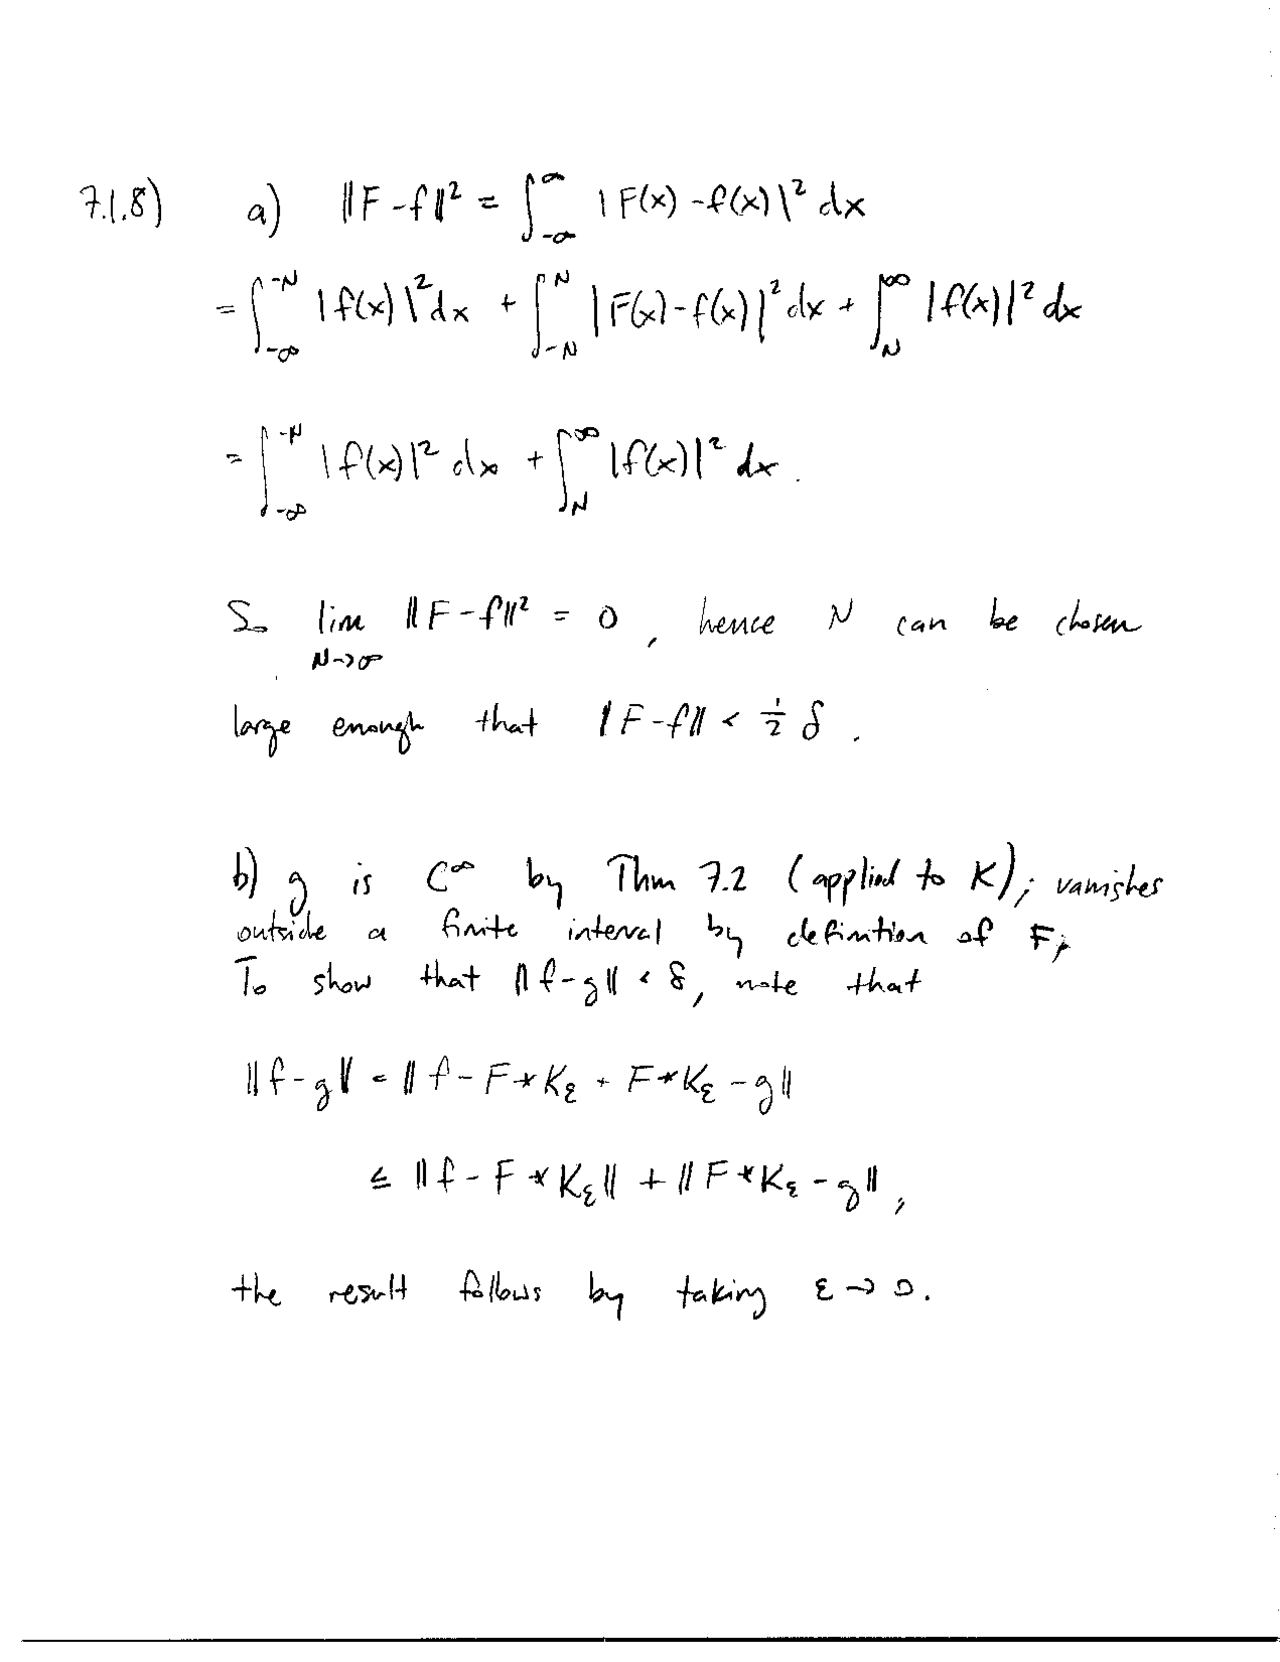 7.1.8) a) ‖F-f‖² = ∫_{-∞}^{∞} |F(x)-f(x)|² dx
= ∫_{-∞}^{-N} |f(x)|² dx + ∫_{-N}^{N} |F(x)-f(x)|² dx + ∫_{N}^{∞} |f(x)|² dx
= ∫_{-∞}^{-N} |f(x)|² dx + ∫_{N}^{∞} |f(x)|² dx.
So lim_{N→∞} ‖F-f‖² = 0, hence N can be chosen
large enough that ‖F-f‖ < ½ δ.
b) g is C^∞ by Thm 7.2 (applied to K); vanishes
outside a finite interval by definition of F;
To show that ‖f-g‖ < δ, note that
‖f-g‖ = ‖f-F*K_ε + F*K_ε-g‖
≤ ‖f-F*K_ε‖ + ‖F*K_ε-g‖,
the result follows by taking ε→0.